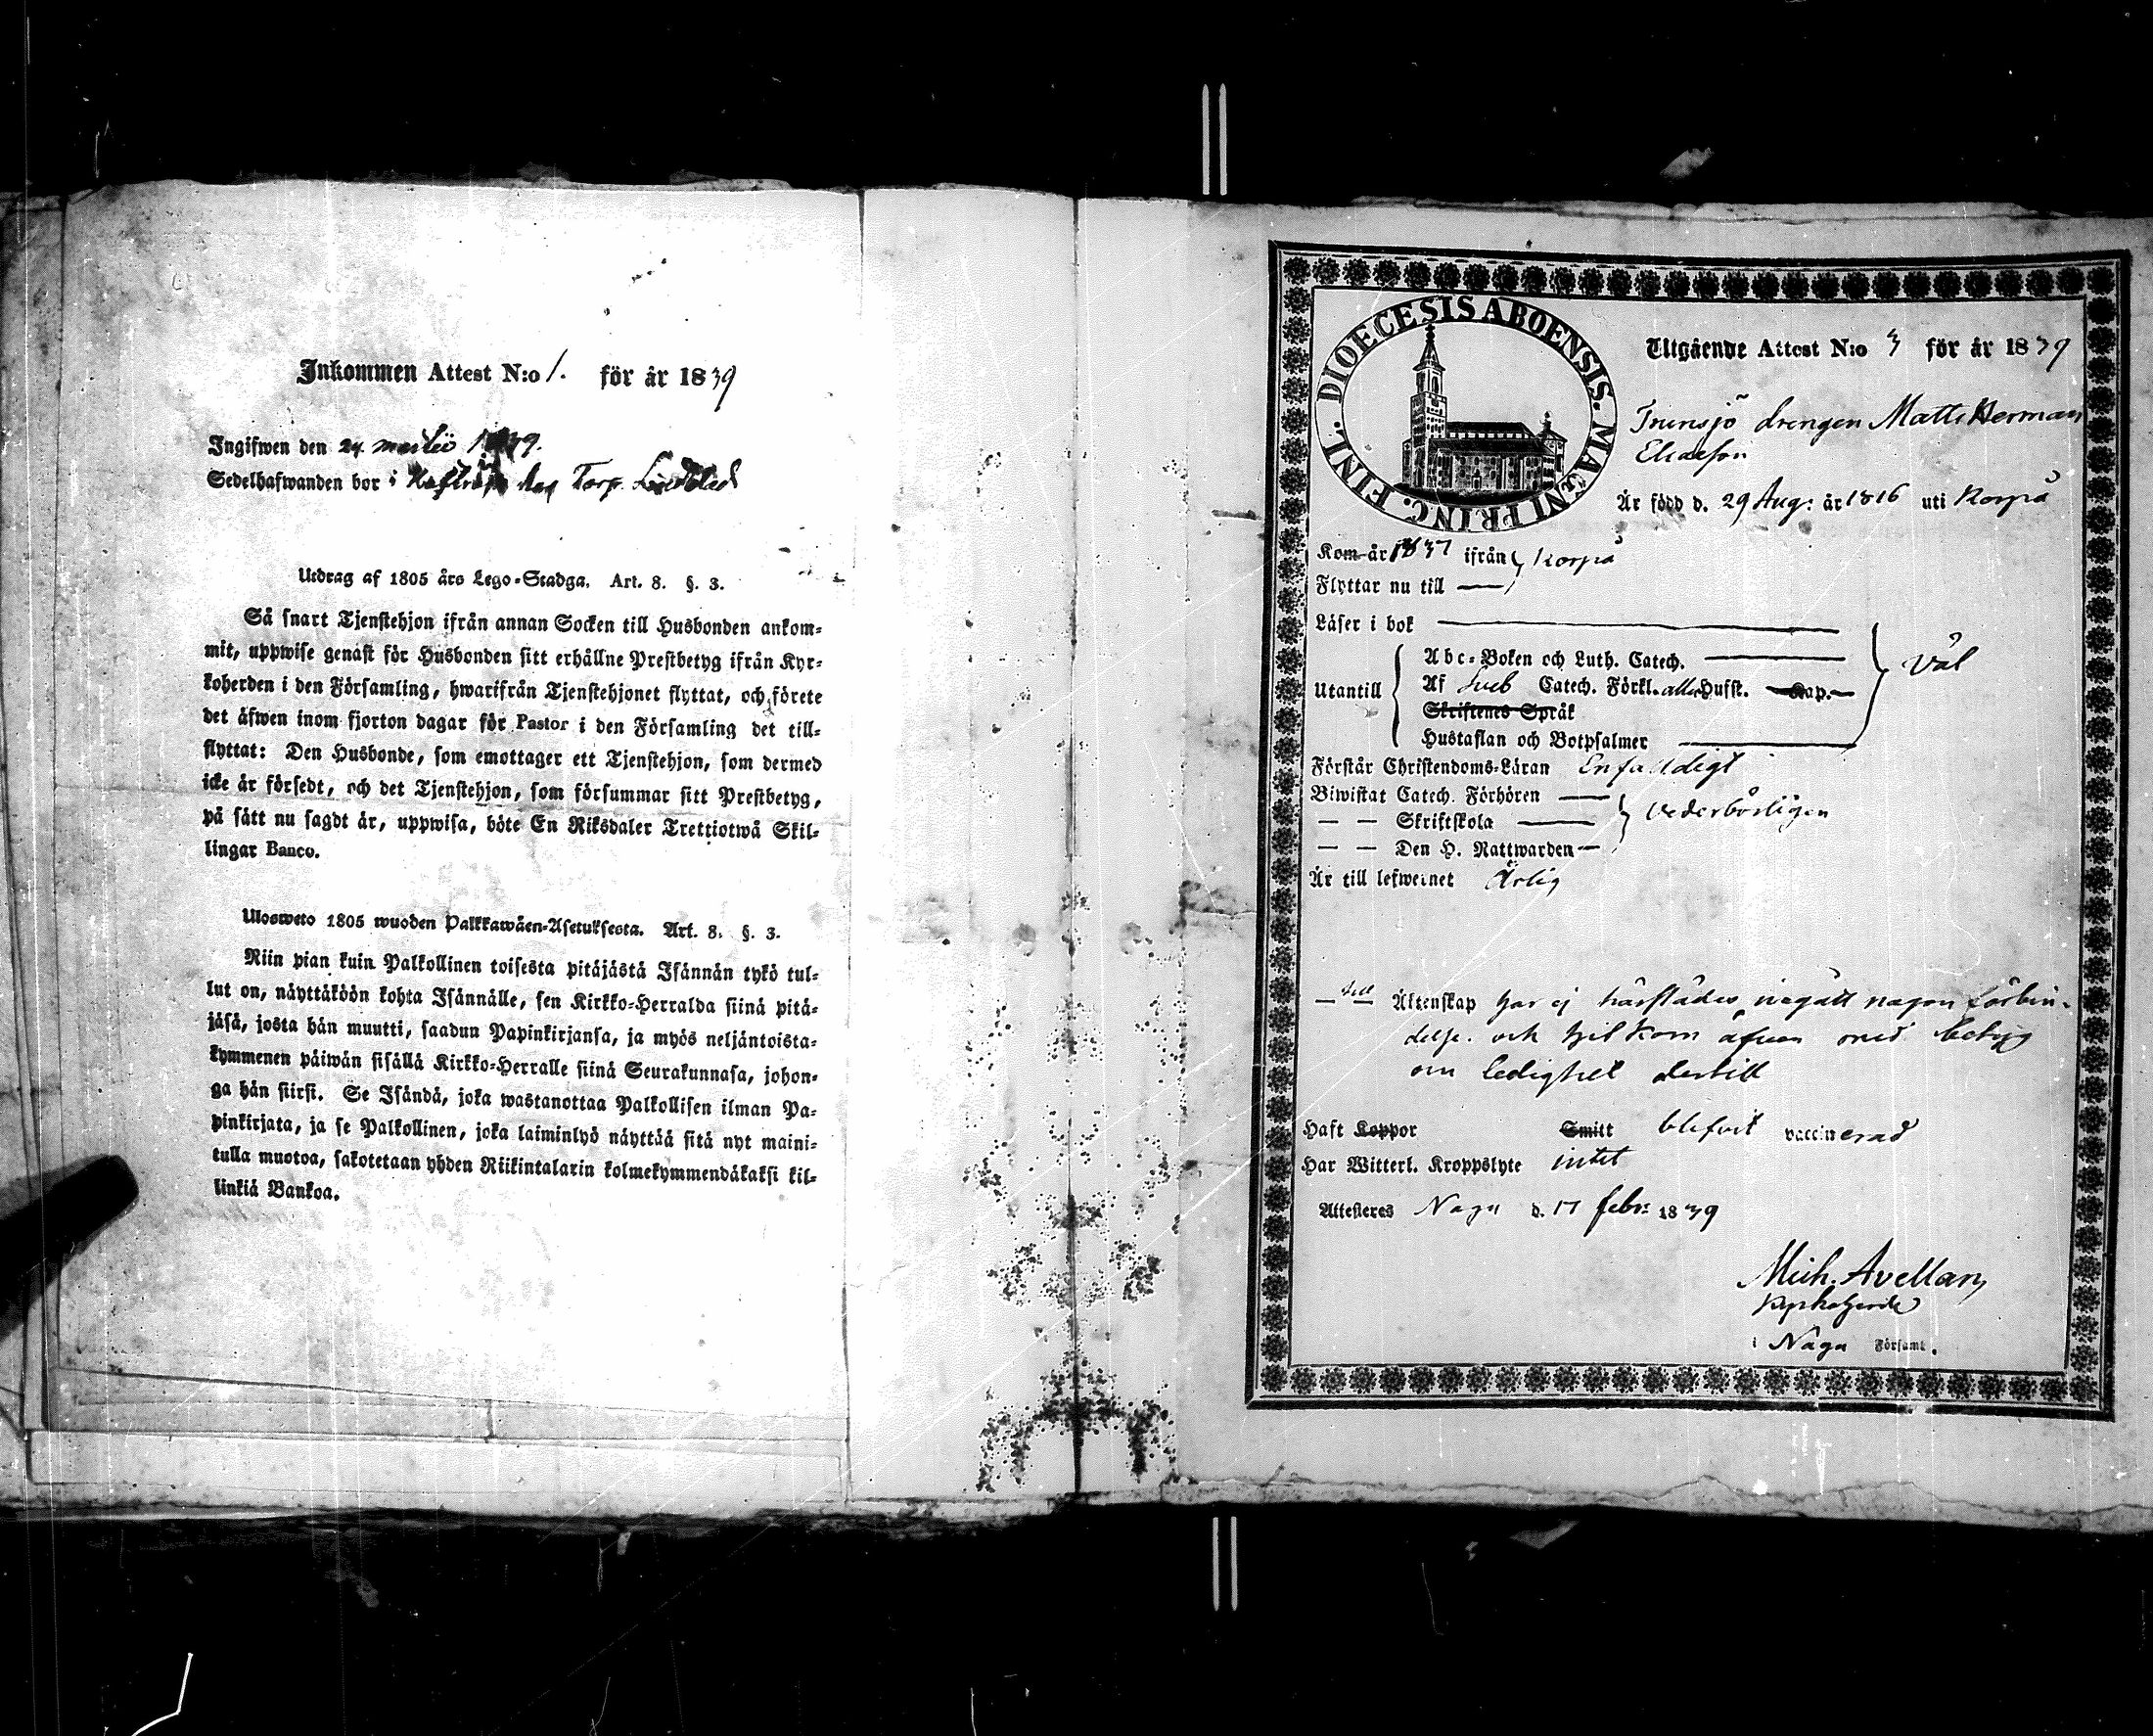 Inkommen Attest N:o 1. för år 1839
Ingifwen den 24 1839.
Sedelhafwanden bor i hos Torp.
Utdrag af 1805 års Lego-Stadga. Art. 8. §. 3.
Så snart Tjenstehjon ifrån annan Socken till Husbonden ankom-
mit, uppwise genast för Husbonden sitt erhållne Prestbetyg ifrån Kyr-
koherden i den Församling, hwarifrån Tjenstehjonet flyttat, och förete
det äfwen inom fjorton dagar för Pastor i den Församling det till-
flyttat: Den Husbonde, som emottager ett Tjenstehjon, som dermed
icke är försedt, och det Tjenstehjon, som försummar sitt Prestbetyg,
på sätt nu sagdt är, uppwisa, böte En Riksdaler Trettiotwå Skil-
lingar Banco.
Ulosweto 1805 wuoden Palkkawäen-Asetuksesta. Art. 8. §. 3.
Niin pian kuin Palkollinen toisesta pitäjästä Isännän tykö tul-
lut on, näyttäköön kohta Isännälle, sen Kirkko-Herralda siinä pitä-
jäsä, josta hän muutti, saadun Papinkirjansa, ja myös neljäntoista-
kymmenen päiwän sisällä Kirkko-Herralle siinä Seurakunnasa, johon-
ga hän siirsi. Se Isändä, joka wastanottaa Palkollisen ilman Pa-
pinkirjata, ja se Palkollinen, joka laiminlyö näyttää sitä nyt maini-
tulla muotoa, sakotetaan yhden Riikintalarin kolmekymmendäkaksi kil-
linkiä Bankoa.
DIOECESIS ABOENSIS. MAGNI PRINC. FINL.
Utgående Attest N:o 3 för år 1839
drengen Matts Herman
Eliasson
Är född d. 29 Aug: år 1816 uti Korpå
Kom år 1837 ifrån Korpå
Flyttar nu till
Läser i bok
Abc-Boken och Luth. Catech.
Utantill Af Sveb Catech. Förkl. alla Hufst. Kap. Väl
Skriftenes Språk
Hustaflan och Botpsalmer
Förstår Christendoms-Läran Enfaldigt
Biwistat Catech. Förhören
— — Skriftskola Vederbörligen
— — Den H. Nattwarden
Är till lefwernet Ärlig
— till — Äktenskap har ej härstädes ingått någon förbin-
delse och hitkom äfven med betyg
om ledighet dertill
Haft Koppor Smitt blifvit vaccinerad
Har Witterl. Kroppslyte intet
Attesteras Nagu d. 17 febr: 1839
Mich. Avellan
Kyrkoherde
i Nagu Församl.